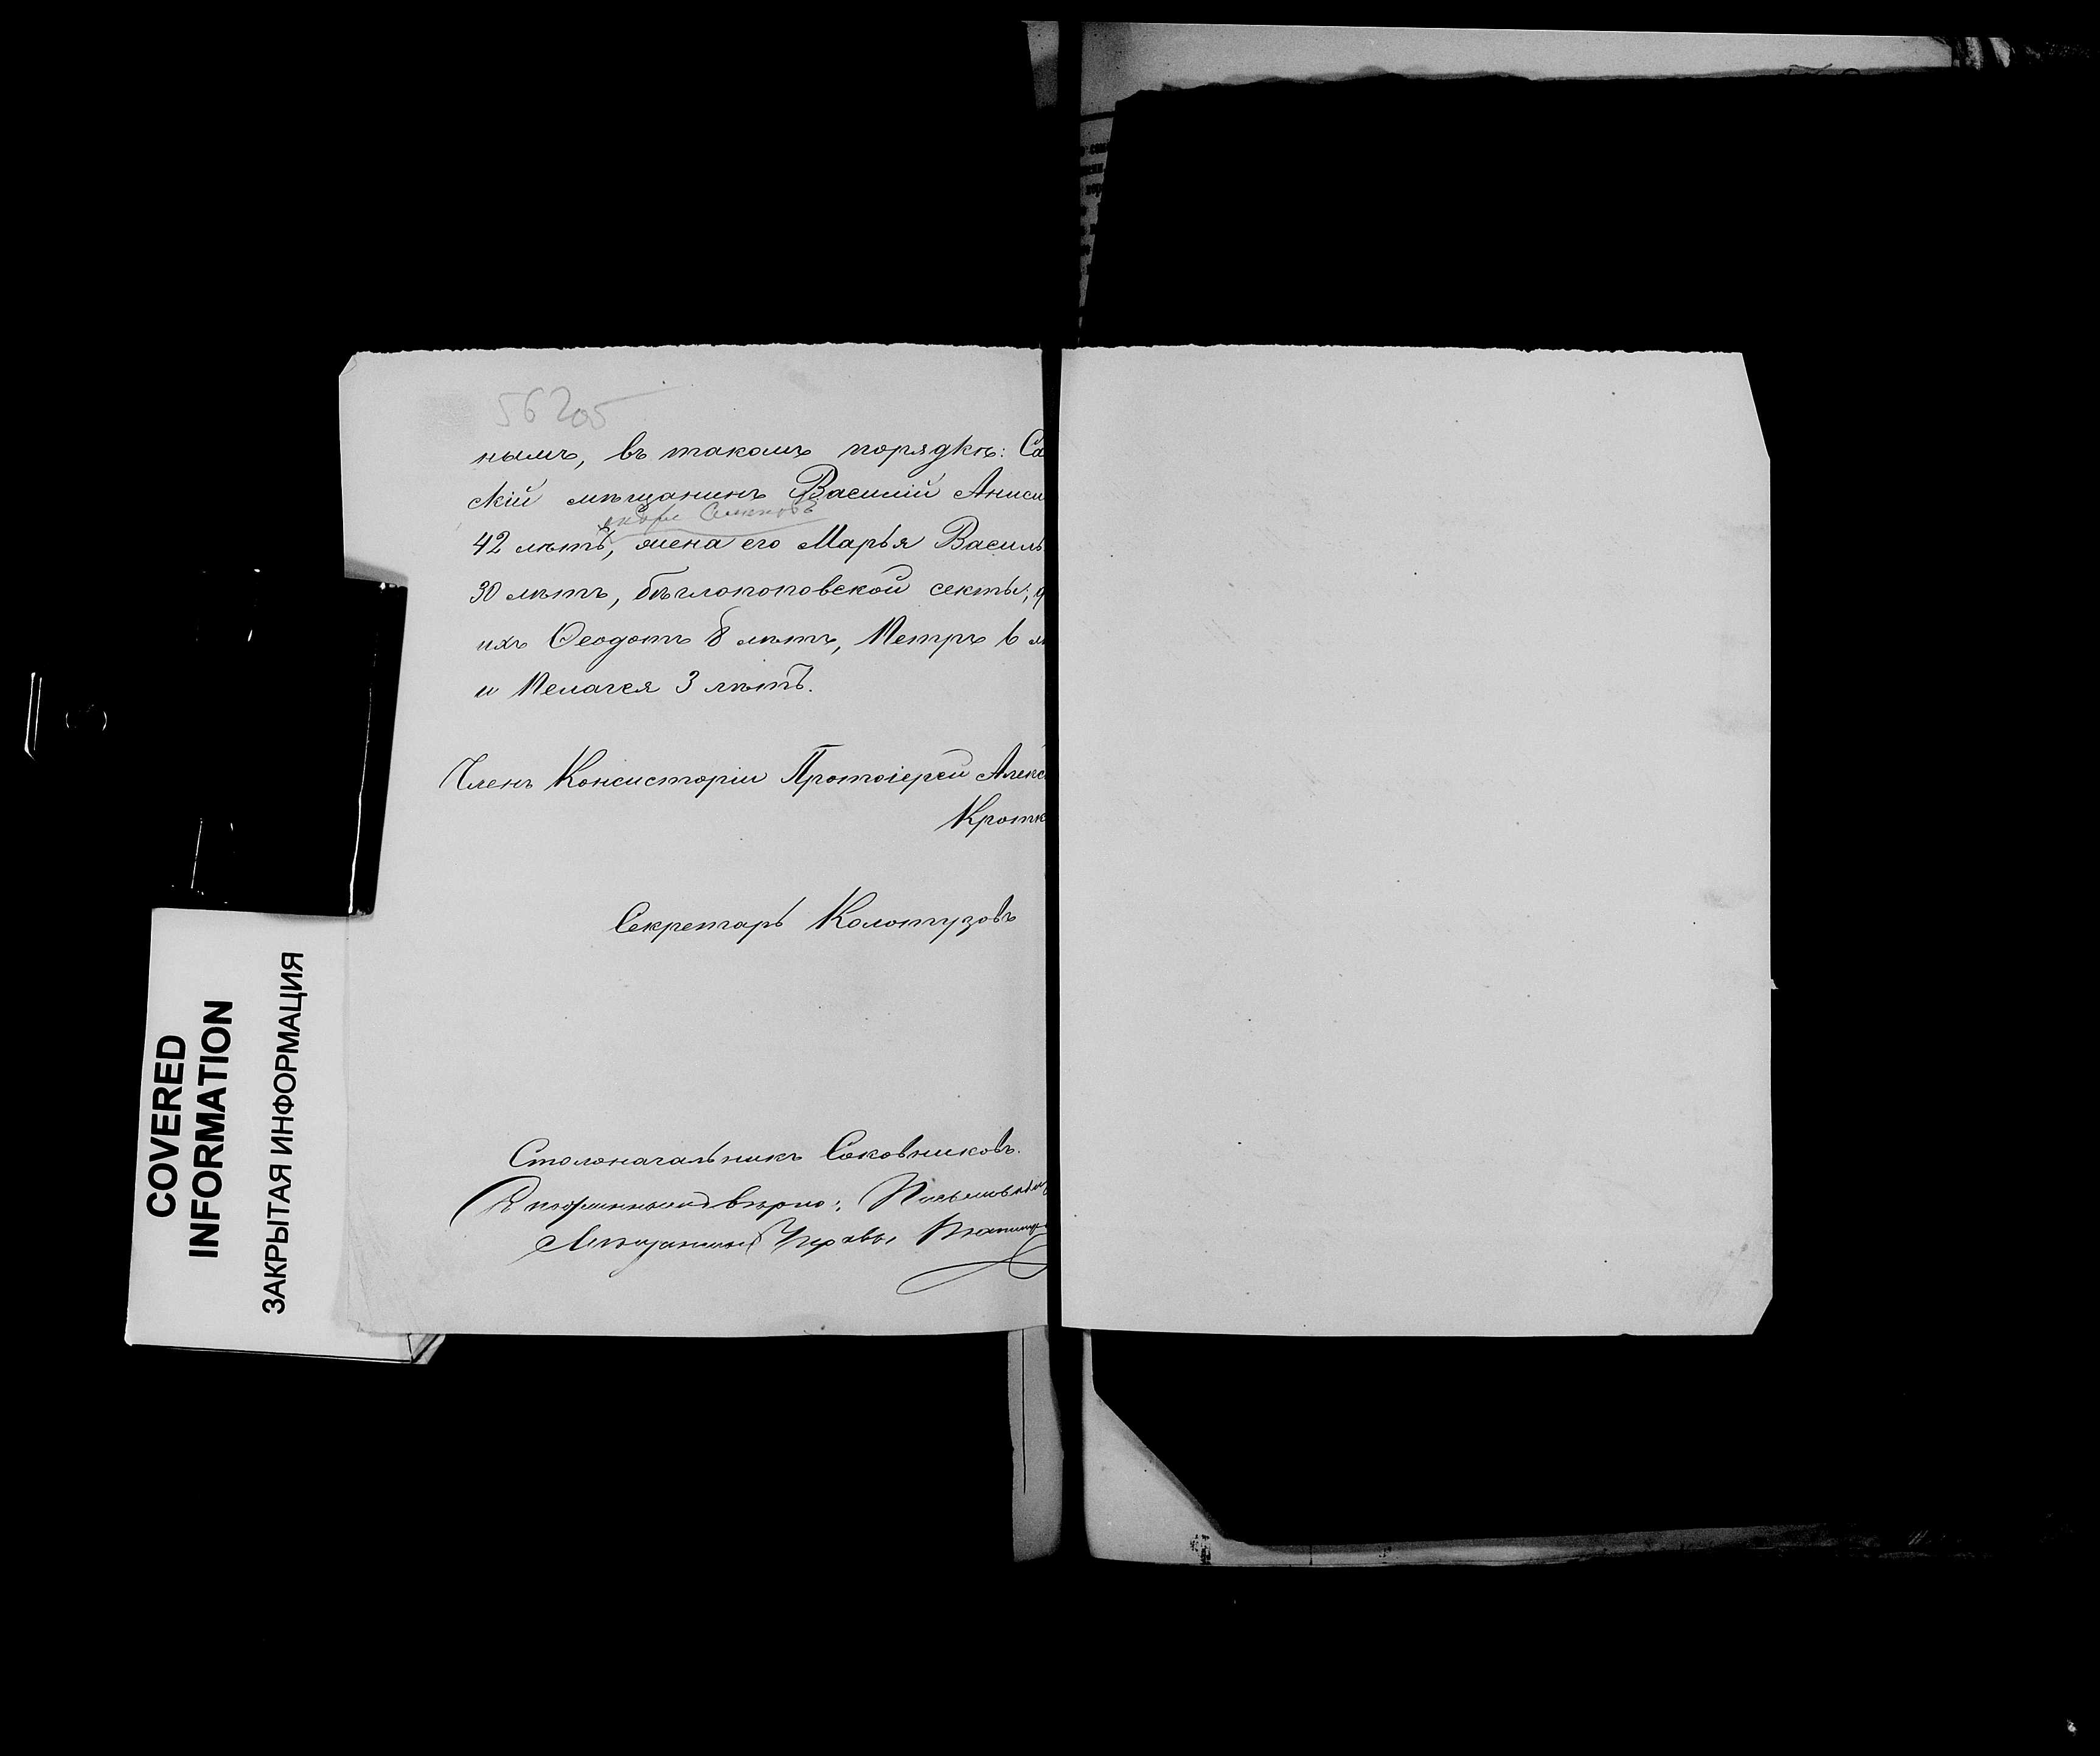 56205
нымъ, въ такомъ порядкѣ: Са
скій мѣщанинъ Василій Аниси
42 лѣтъ, жена его Марья Василь
30 лѣтъ, бѣглопоповской секты,
ихъ Ѳеодотъ 8 лѣтъ, Петръ 6 лѣ
и Пелагея 3 лѣтъ.
Членъ Консисторіи Протоіерей Алекс
Кротк
Секретарь Колотузовъ
Столоначальникъ Соковниковъ.
вѣрно: Письмов
Мѣщанской Управы
COVERED
INFORMATION
ЗАКРЫТАЯ ИНФОРМАЦИЯ